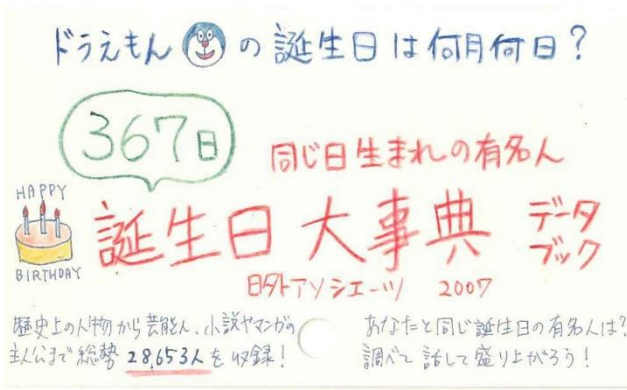 ドラえもんの誕生日は何月何日?
367日
同じ日生まれの有名人
HAPPY
BIRTHDAY
誕生日大事典
データ
ブック
日外アソシエーツ 2007
歴史上の人物から芸能人、小説やマンガの
主人公まで総勢28,653人を収録!
あなたと同じ誕生日の有名人は?
調べて話して盛り上がろう!